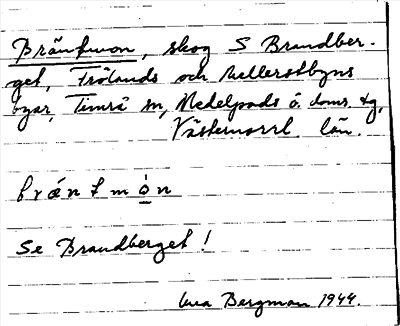 Bräntmon, skog S Brandber-
get, Frölands och Mellerstbyns
byar, Timrå sn, Medelpads ö. doms. tg,
Västernorrl. län.
bräntmòn
Se Brandberget!
Bergman 1944.